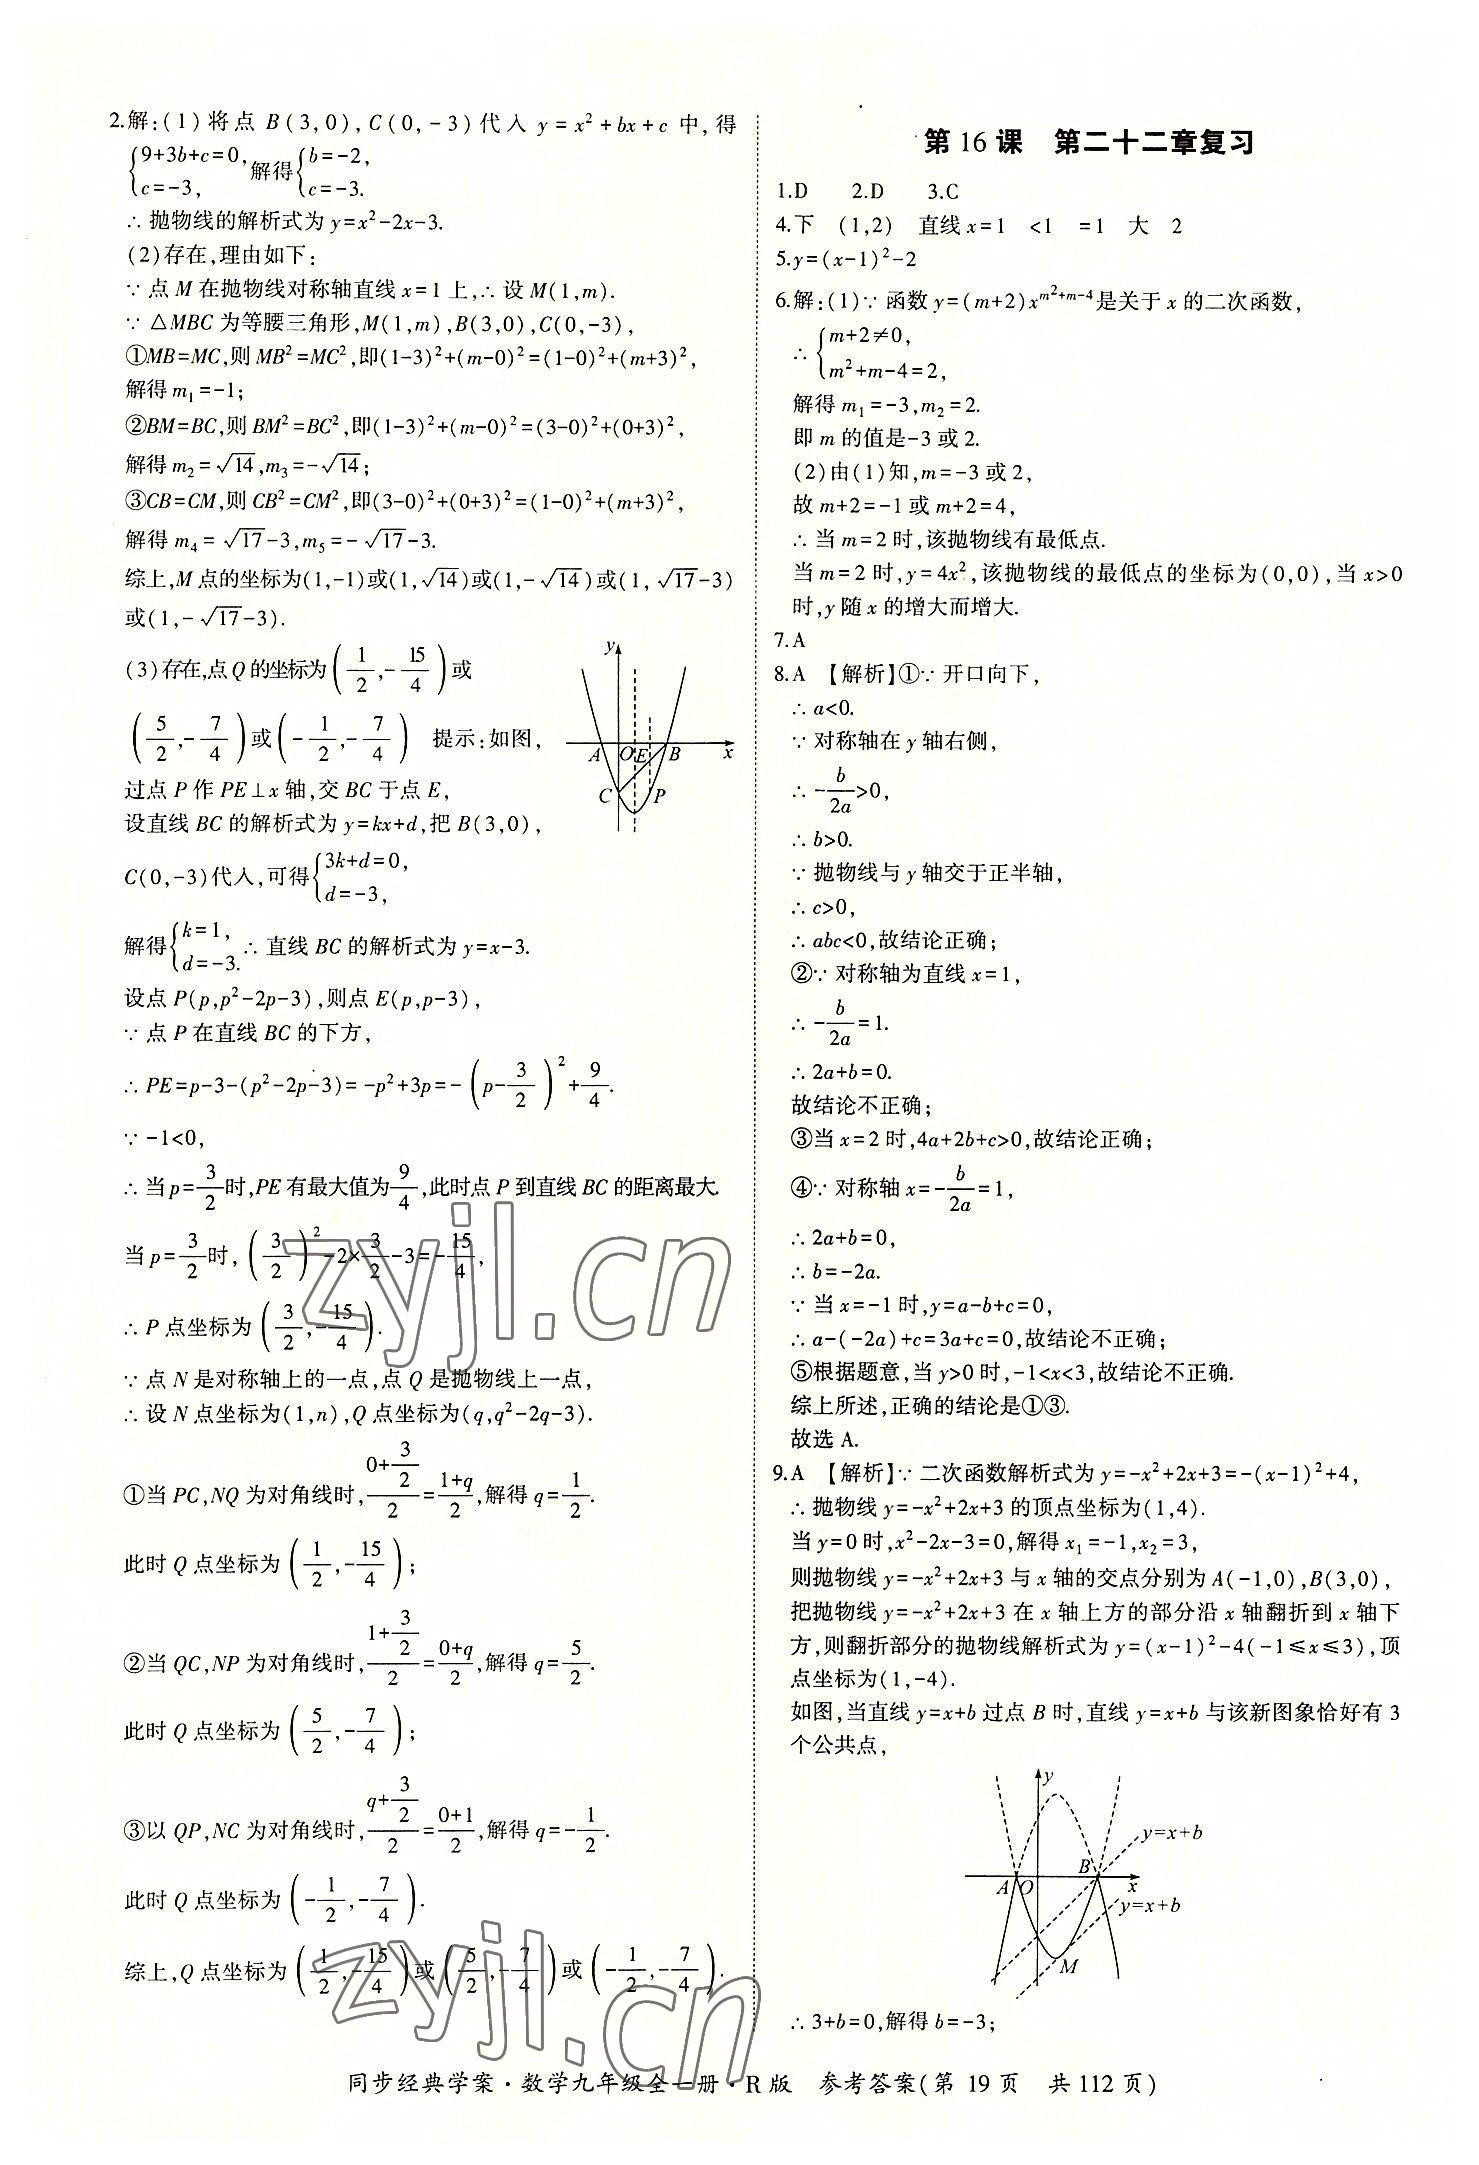 2.解:(1)将点 B(3,0),C(0,-3)代入 y=x²+bx+c 中,得
{9+3b+c=0, c=-3, 解得{b=-2, c=-3.
∴抛物线的解析式为 y=x²-2x-3.
(2)存在,理由如下:
∵点 M 在抛物线对称轴直线 x=1 上,∴设 M(1,m).
∵△MBC 为等腰三角形,M(1,m),B(3,0),C(0,-3),
①MB=MC,则 MB²=MC²,即(1-3)²+(m-0)²=(1-0)²+(m+3)²,
解得 m₁=-1;
②BM=BC,则 BM²=BC²,即(1-3)²+(m-0)²=(3-0)²+(0+3)²,
解得 m₂=√14,m₃=-√14;
③CB=CM,则 CB²=CM²,即(3-0)²+(0+3)²=(1-0)²+(m+3)²,
解得 m₄=√17-3,m₅=-√17-3.
综上,M 点的坐标为(1,-1)或(1,√14)或(1,-√14)或(1,√17-3)
或(1,-√17-3).
(3)存在,点 Q 的坐标为(1/2,-15/4)或
(5/2,-7/4)或(-1/2,-7/4) 提示:如图,
y
A O E B x
C P
过点 P 作 PE⊥x 轴,交 BC 于点 E,
设直线 BC 的解析式为 y=kx+d,把 B(3,0),
C(0,-3)代入,可得{3k+d=0, d=-3,
解得{k=1, d=-3. ∴直线 BC 的解析式为 y=x-3.
设点 P(p,p²-2p-3),则点 E(p,p-3),
∵点 P 在直线 BC 的下方,
∴PE=p-3-(p²-2p-3)=-p²+3p=-(p-3/2)²+9/4.
∵-1<0,
∴当 p=3/2时,PE 有最大值为9/4,此时点 P 到直线 BC 的距离最大.
当 p=3/2时,(3/2)²-2×3/2-3=-15/4,
∴P 点坐标为(3/2,-15/4).
∵点 N 是对称轴上的一点,点 Q 是抛物线上一点,
∴设 N 点坐标为(1,n),Q 点坐标为(q,q²-2q-3).
①当 PC,NQ 为对角线时,(0+3/2)/2=(1+q)/2,解得 q=1/2.
此时 Q 点坐标为(1/2,-15/4);
②当 QC,NP 为对角线时,(1+3/2)/2=(0+q)/2,解得 q=5/2.
此时 Q 点坐标为(5/2,-7/4);
③以 QP,NC 为对角线时,(q+3/2)/2=(0+1)/2,解得 q=-1/2.
此时 Q 点坐标为(-1/2,-7/4).
综上,Q 点坐标为(1/2,-15/4)或(5/2,-7/4)或(-1/2,-7/4).
第 16 课 第二十二章复习
1.D 2.D 3.C
4.下 (1,2) 直线 x=1 <1 =1 大 2
5.y=(x-1)²-2
6.解:(1)∵函数 y=(m+2)x^(m²+m-4)是关于 x 的二次函数,
∴{m+2≠0, m²+m-4=2,
解得 m₁=-3,m₂=2.
即 m 的值是-3 或 2.
(2)由(1)知,m=-3 或 2,
故 m+2=-1 或 m+2=4,
∴当 m=2 时,该抛物线有最低点.
当 m=2 时,y=4x²,该抛物线的最低点的坐标为(0,0),当 x>0
时,y 随 x 的增大而增大.
7.A
8.A 【解析】①∵开口向下,
∴a<0.
∵对称轴在 y 轴右侧,
∴-b/2a>0,
∴b>0.
∵抛物线与 y 轴交于正半轴,
∴c>0,
∴abc<0,故结论正确;
②∵对称轴为直线 x=1,
∴-b/2a=1.
∴2a+b=0.
故结论不正确;
③当 x=2 时,4a+2b+c>0,故结论正确;
④∵对称轴 x=-b/2a=1,
∴2a+b=0,
∴b=-2a.
∵当 x=-1 时,y=a-b+c=0,
∴a-(-2a)+c=3a+c=0,故结论不正确;
⑤根据题意,当 y>0 时,-1<x<3,故结论不正确.
综上所述,正确的结论是①③.
故选 A.
9.A 【解析】∵二次函数解析式为 y=-x²+2x+3=-(x-1)²+4,
∴抛物线 y=-x²+2x+3 的顶点坐标为(1,4).
当 y=0 时,x²-2x-3=0,解得 x₁=-1,x₂=3,
则抛物线 y=-x²+2x+3 与 x 轴的交点分别为 A(-1,0),B(3,0),
把抛物线 y=-x²+2x+3 在 x 轴上方的部分沿 x 轴翻折到 x 轴下
方,则翻折部分的抛物线解析式为 y=(x-1)²-4(-1≤x≤3),顶
点坐标为(1,-4).
如图,当直线 y=x+b 过点 B 时,直线 y=x+b 与该新图象恰好有 3
个公共点,
y
y=x+b
A O B x
y=x+b
M
∴3+b=0,解得 b=-3;
同步经典学案·数学九年级全一册·R 版 参考答案(第 19 页 共 112 页)
zyjl.cn
zyjl.cn